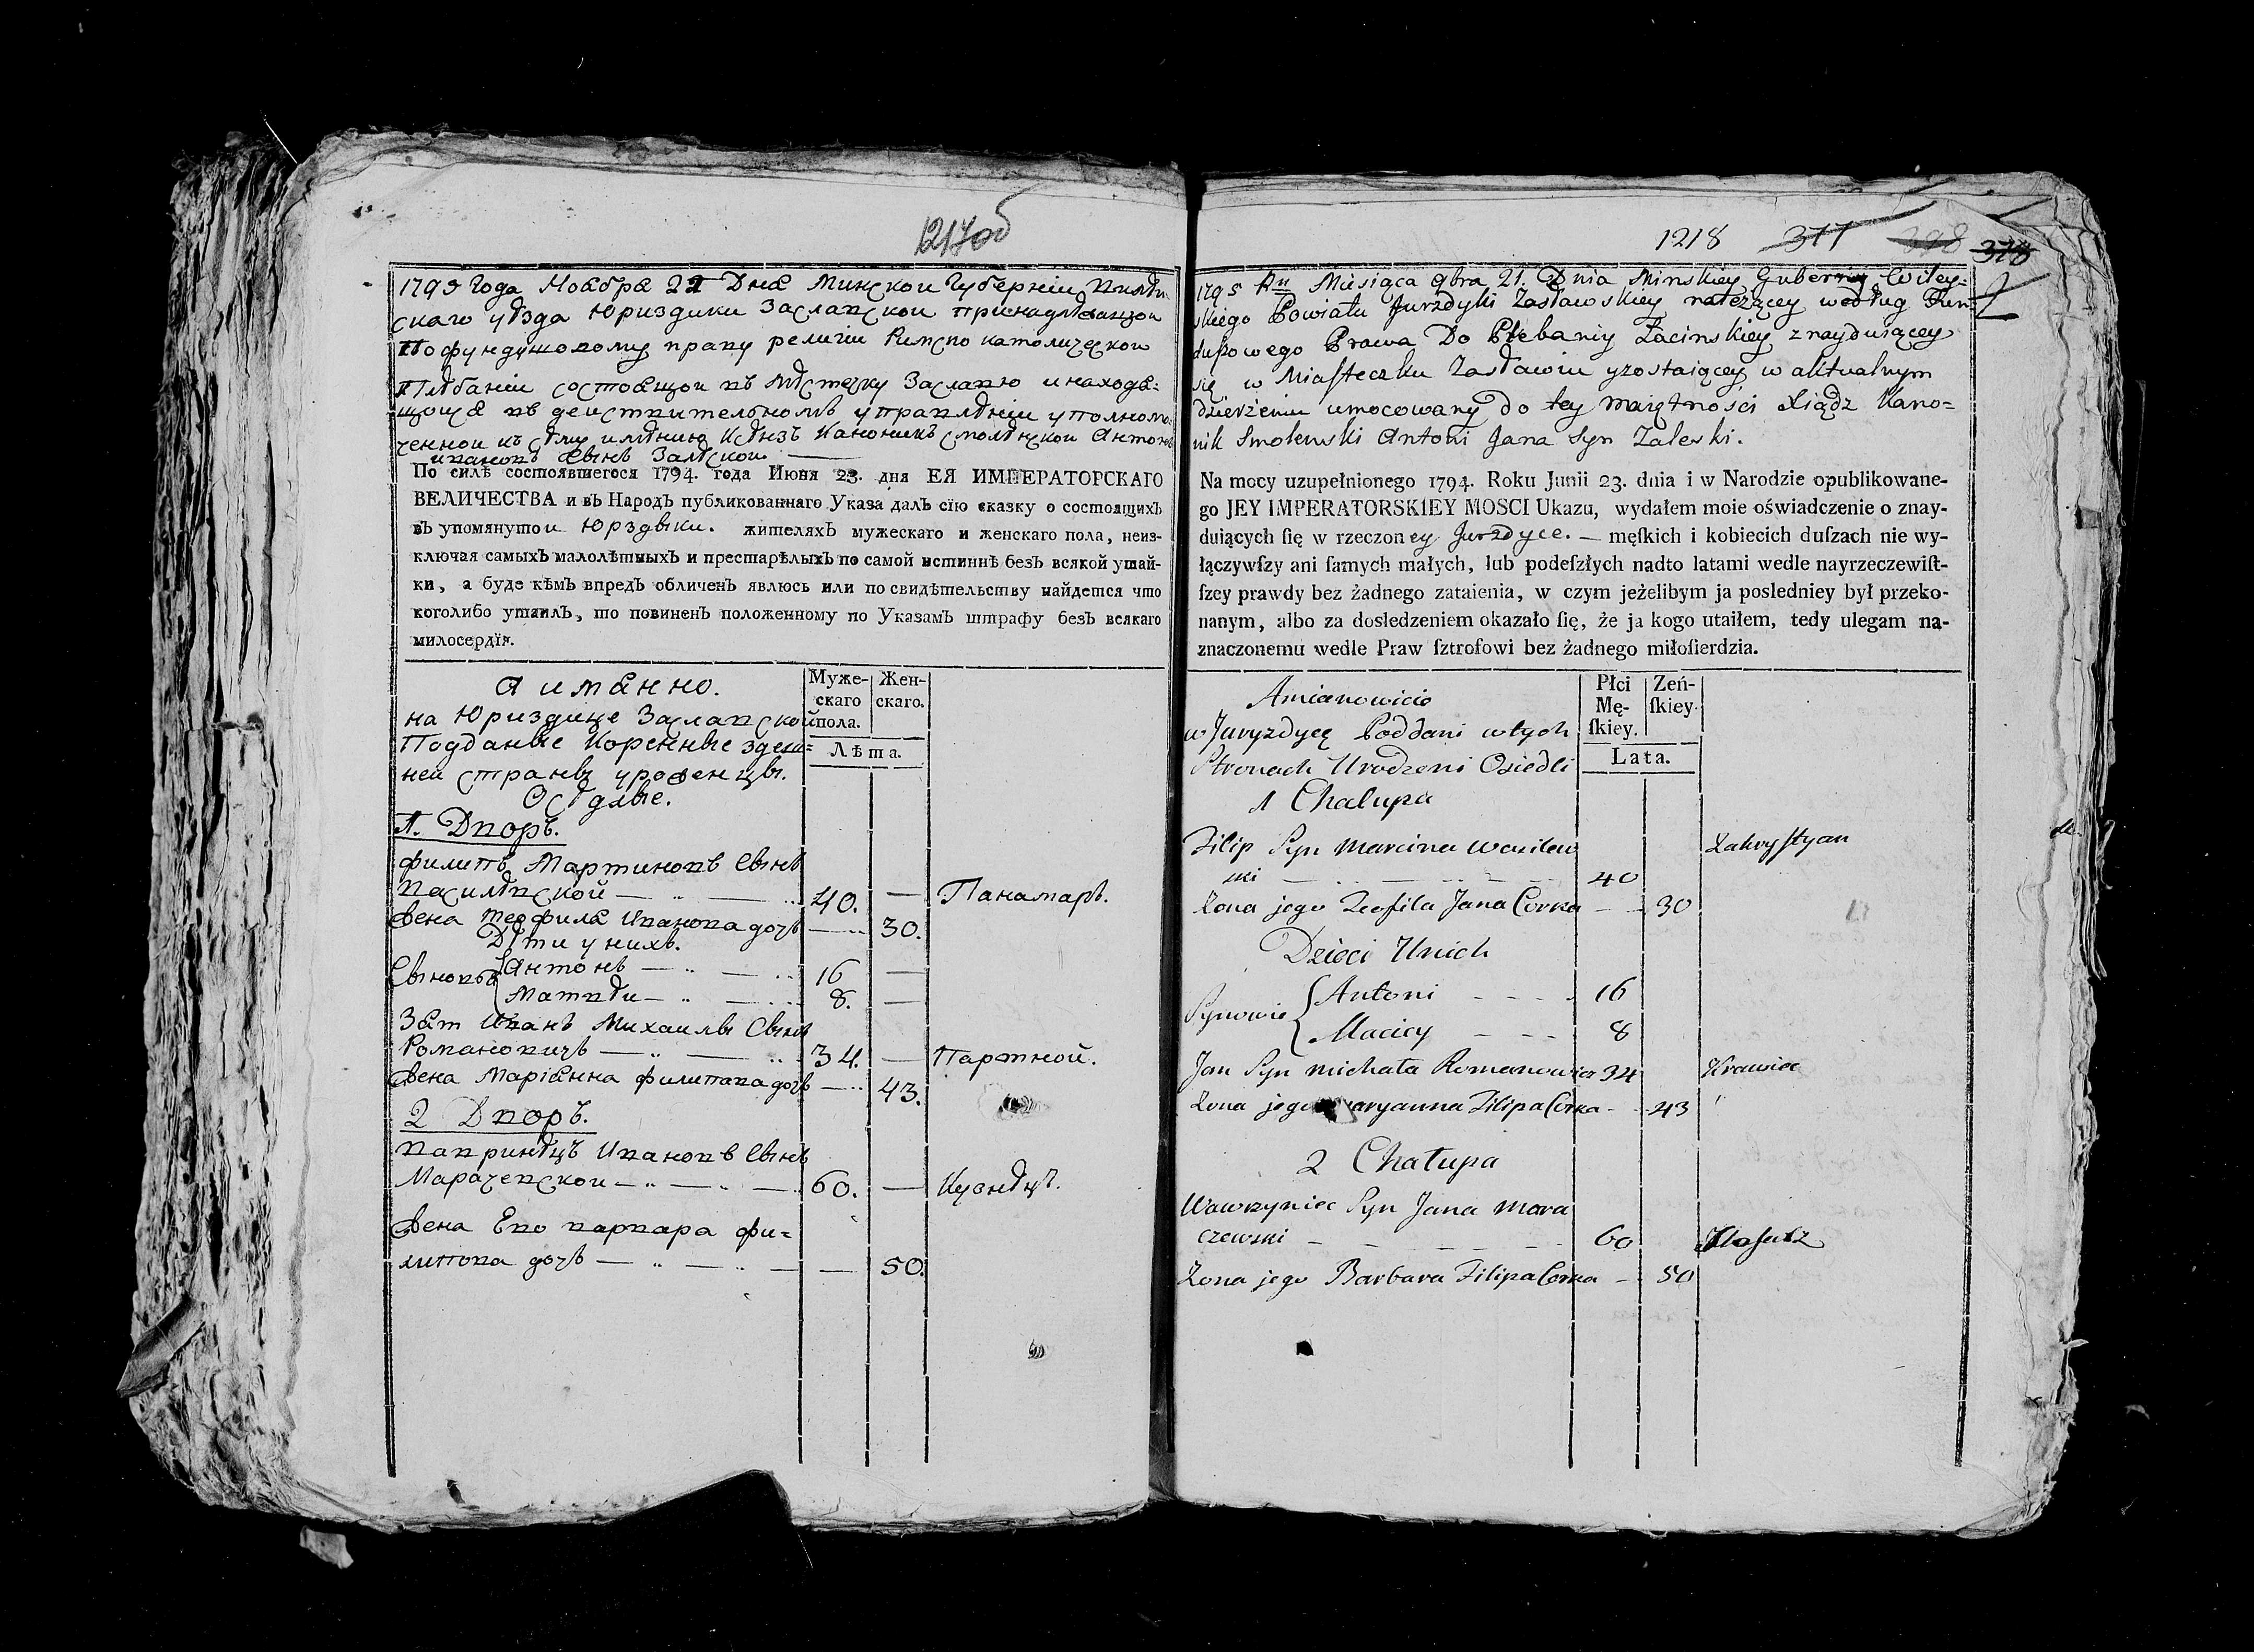 1217об
1795 Года Ноабра 21 Дна Минской Губерніи
скаго уѣзда Юриздики Заславской принадлежащои
По фундушовому праву религіи Римско католическои
Плебаніи состоащои въ мѣстечку Заславю инаходя=
щоися въ деиствительномъ управленіи уполномо
ченнои къ сему имѣнию Ксендзъ Каноникъ Смоленскои Антонъ
ивановъ сынъ Залескои.
По силѣ состоявшегося 1794. года Июня 23. дня ЕЯ ИМПЕРАТОРСКАГО
ВЕЛИЧЕСТВА и въ Народъ публикованнаго Указа далъ сїю сказку о состоящихъ
въ упомянутои Юрздыки. жителяхъ мужескаго и женскаго пола, неиз-
ключая самыхъ малолѣтныхъ и престарѣлыхъ по самой истиннѣ безъ всякой утай-
ки, а буде кѣмъ впредъ обличенъ явлюсь или по свидѣтельству найдется что
коголибо утаилъ, то повиненъ положенному по Указамъ штрафу безъ всякаго
милосердїя.
а имянно.
на Юриздице Заславской
Подданые Коренные здеш=
ней страны уроженцы.
Оседлые.
Муже-
скаго
пола.
Жен-
скаго.
Лѣта.
1. Дворъ.
филипъ Мартиновъ Сынъ
василевской — 40. — Панамаръ.
Жена теофиля Иванова дочь — 30.
Дѣти у нихъ.
Сыновья { Антонъ — 16 —
Матвеи — 8. —
Зят Иванъ Михаилы Сынъ
Романовичъ — 34. — Партной.
Жена Маріянна филипава дочь — 43.
2 Дворъ.
вавринецъ Ивановъ Сынъ
Марачевскои — 60. — Кузнецъ.
Жена Ево варвара фи=
липова дочь — 50.
1218 377 398 378
1795 Ru Miesiąca 9bra 21. Dnia Minskiey Gubernij Wiley=
skiego Powiatu Jurzdyki Zasławskiey należącey według Fun=
duszowego Prawa Do Plebaniy Łacinskiey znayduiącey
się w Miasteczku Zasławiu yzostaiącey w aktualnym
dzierżeniu umocowany do tey maiętności Xiądz Kano=
nik Smolenski Antoni Jana Syn Zaleski.
Na mocy uzupełnionego 1794. Roku Junii 23. dnia i w Narodzie opublikowane-
go JEY IMPERATORSKIEY MOSCI Ukazu, wydałem moie oświadczenie o znay-
duiących ſię w rzeczoney Jurzdyce. — męſkich i kobiecich duſzach nie wy-
łączywſzy ani ſamych małych, lub podeſzłych nadto latami wedle nayrzeczewiſt-
ſzey prawdy bez żadnego zataienia, w czym jeżelibym ja posledniey był przeko-
nanym, albo za dosledzeniem okazało ſię, że ja kogo utaiłem, tedy ulegam na-
znaczonemu wedle Praw ſztrofowi bez żadnego miłoſierdzia.
Amianowicio
w Juryzdycę Poddani wtych
Stronach Urodzeni Osiedli
Płci
Mę-
ſkiey.
Zeń-
ſkiey.
Lata.
1 Chalupa
Filip Syn Marcina Wasilew
ski — 40 Zakrystyan
Zona jego Teofila Jana Corka — 30
Dzieci Unich
Synowie { Antoni — 16
Maciey — 8
Jan Syn michała Romanowicz 34 Krawiec
Zona jego Maryanna Filipa Corka — 43
2 Chałupa
Wawrzyniec Syn Jana Mora
czewski — 60
Zona jego Barbara Filipa Corka — 50